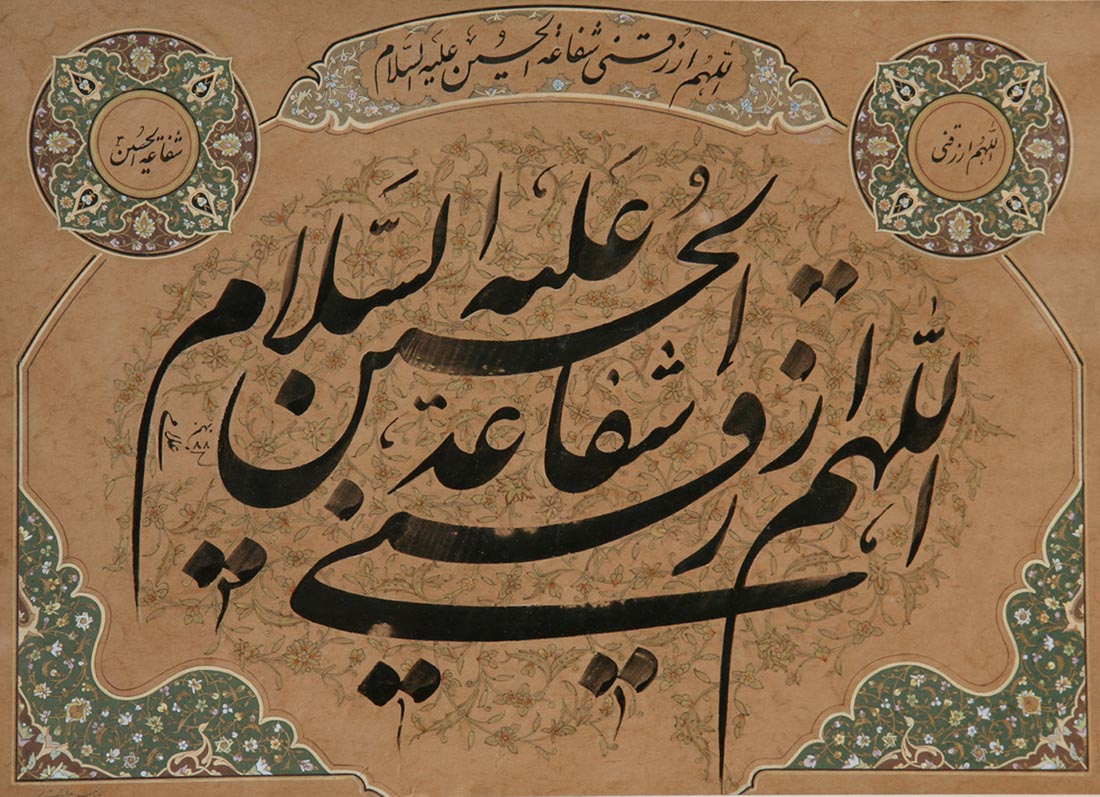 اللهم ارزقنی شفاعة الحسین علیه السلام
اللهم ارزقنی
شفاعة الحسین
اللهم ارزقنی شفاعة الحسین علیه السلام